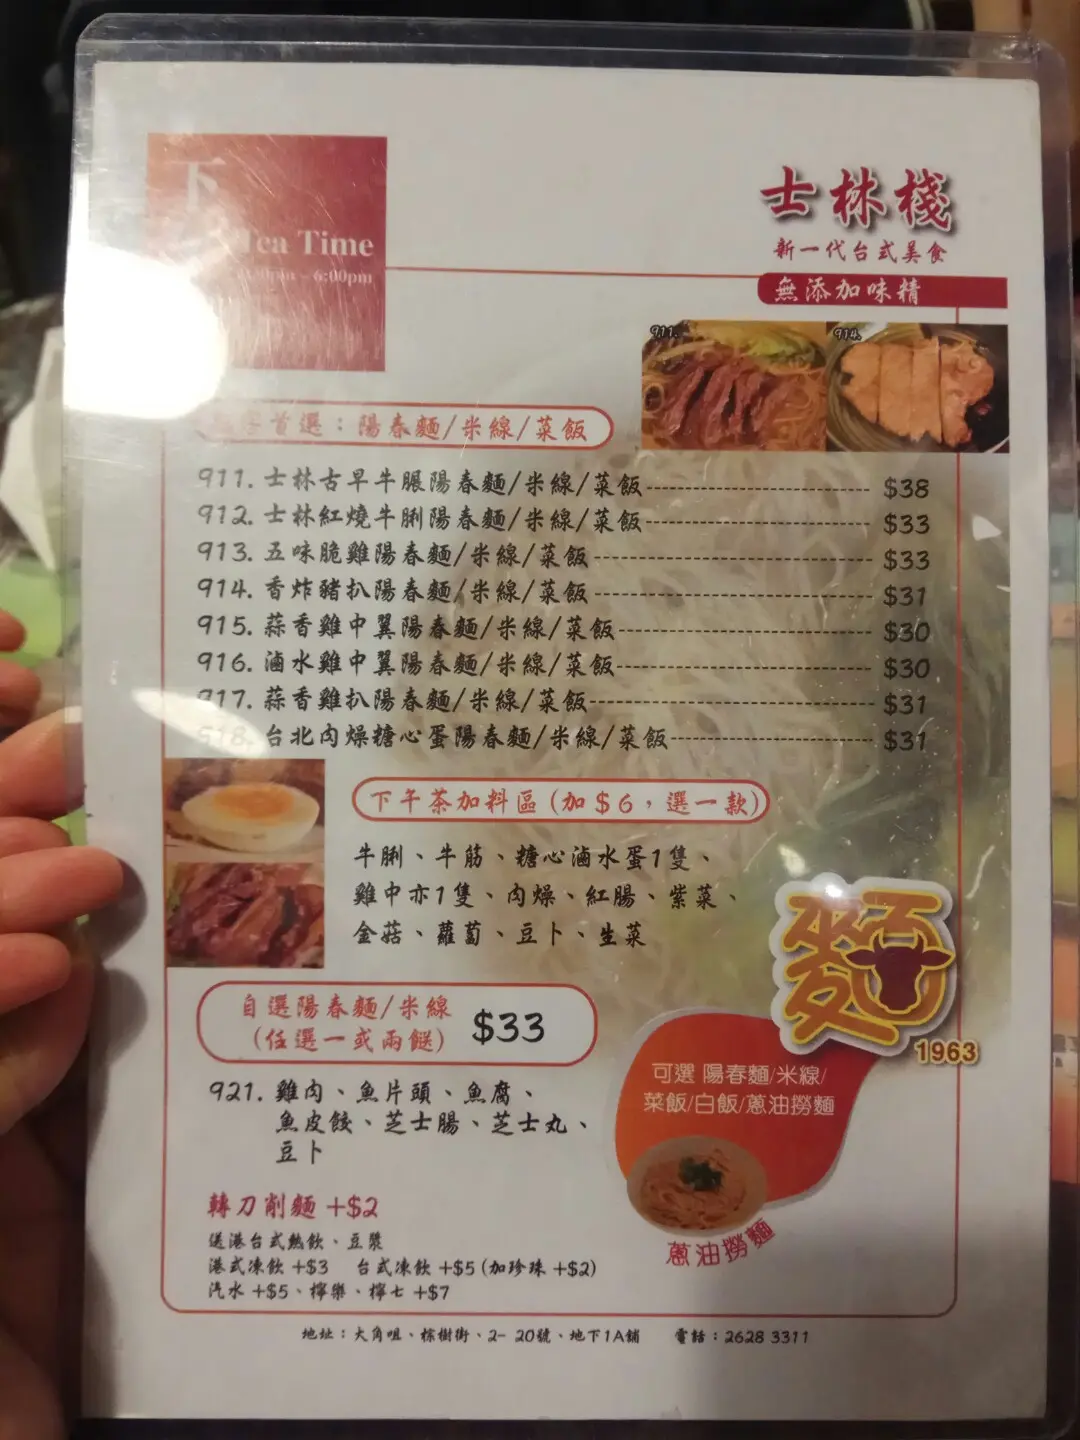 下
Tea Time
- 6:00pm
士林棧
新一代台式美食
無添加味精
911.
914.
首選：陽春麵/米線/菜飯
911. 士林古早牛腿陽春麵/米線/菜飯 $38
912. 士林紅燒牛脷陽春麵/米線/菜飯 $33
913. 五味脆雞陽春麵/米線/菜飯 $33
914. 香炸豬扒陽春麵/米線/菜飯 $31
915. 蒜香雞中翼陽春麵/米線/菜飯 $30
916. 滷水雞中翼陽春麵/米線/菜飯 $30
917. 蒜香雞扒陽春麵/米線/菜飯 $31
918. 台北肉燥糖心蛋陽春麵/米線/菜飯 $31
下午茶加料區 (加$6，選一款)
牛脷、牛筋、糖心滷水蛋1隻、
雞中亦1隻、肉燥、紅腸、紫菜、
金菇、蘿蔔、豆卜、生菜
自選陽春麵/米線
(任選一或兩餸) $33
921. 雞肉、魚片頭、魚腐、
魚皮餃、芝士腸、芝士丸、
豆卜
麵
1963
可選 陽春麵/米線/
菜飯/白飯/蔥油撈麵
蔥油撈麵
轉刀削麵 +$2
送港台式熱飲、豆漿
港式凍飲 +$3 台式凍飲 +$5 (加珍珠 +$2)
汽水 +$5、檸樂、檸七 +$7
地址：大角咀、棕樹街、2- 20號、地下1A舖 電話：2628 3311